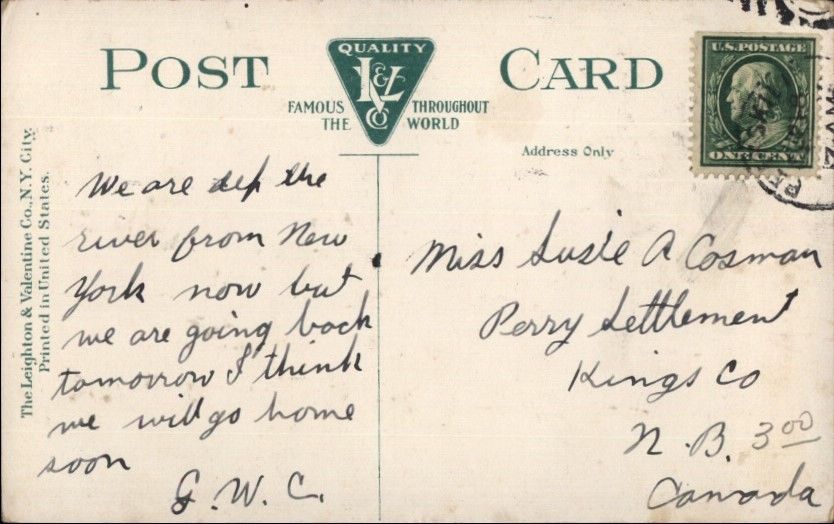 POST CARD
QUALITY
L & V Co
FAMOUS THROUGHOUT
THE WORLD
Address Only
U.S. POSTAGE
ONE CENT
The Leighton & Valentine Co., N.Y. City.
Printed in United States.
We are up the
river from New
York now but
we are going back
tomorrow I think
we will go home
soon
G. W. C.
Miss Susie A Cosman
Perry Settlement
Kings Co
N. B.
Canada
3 00